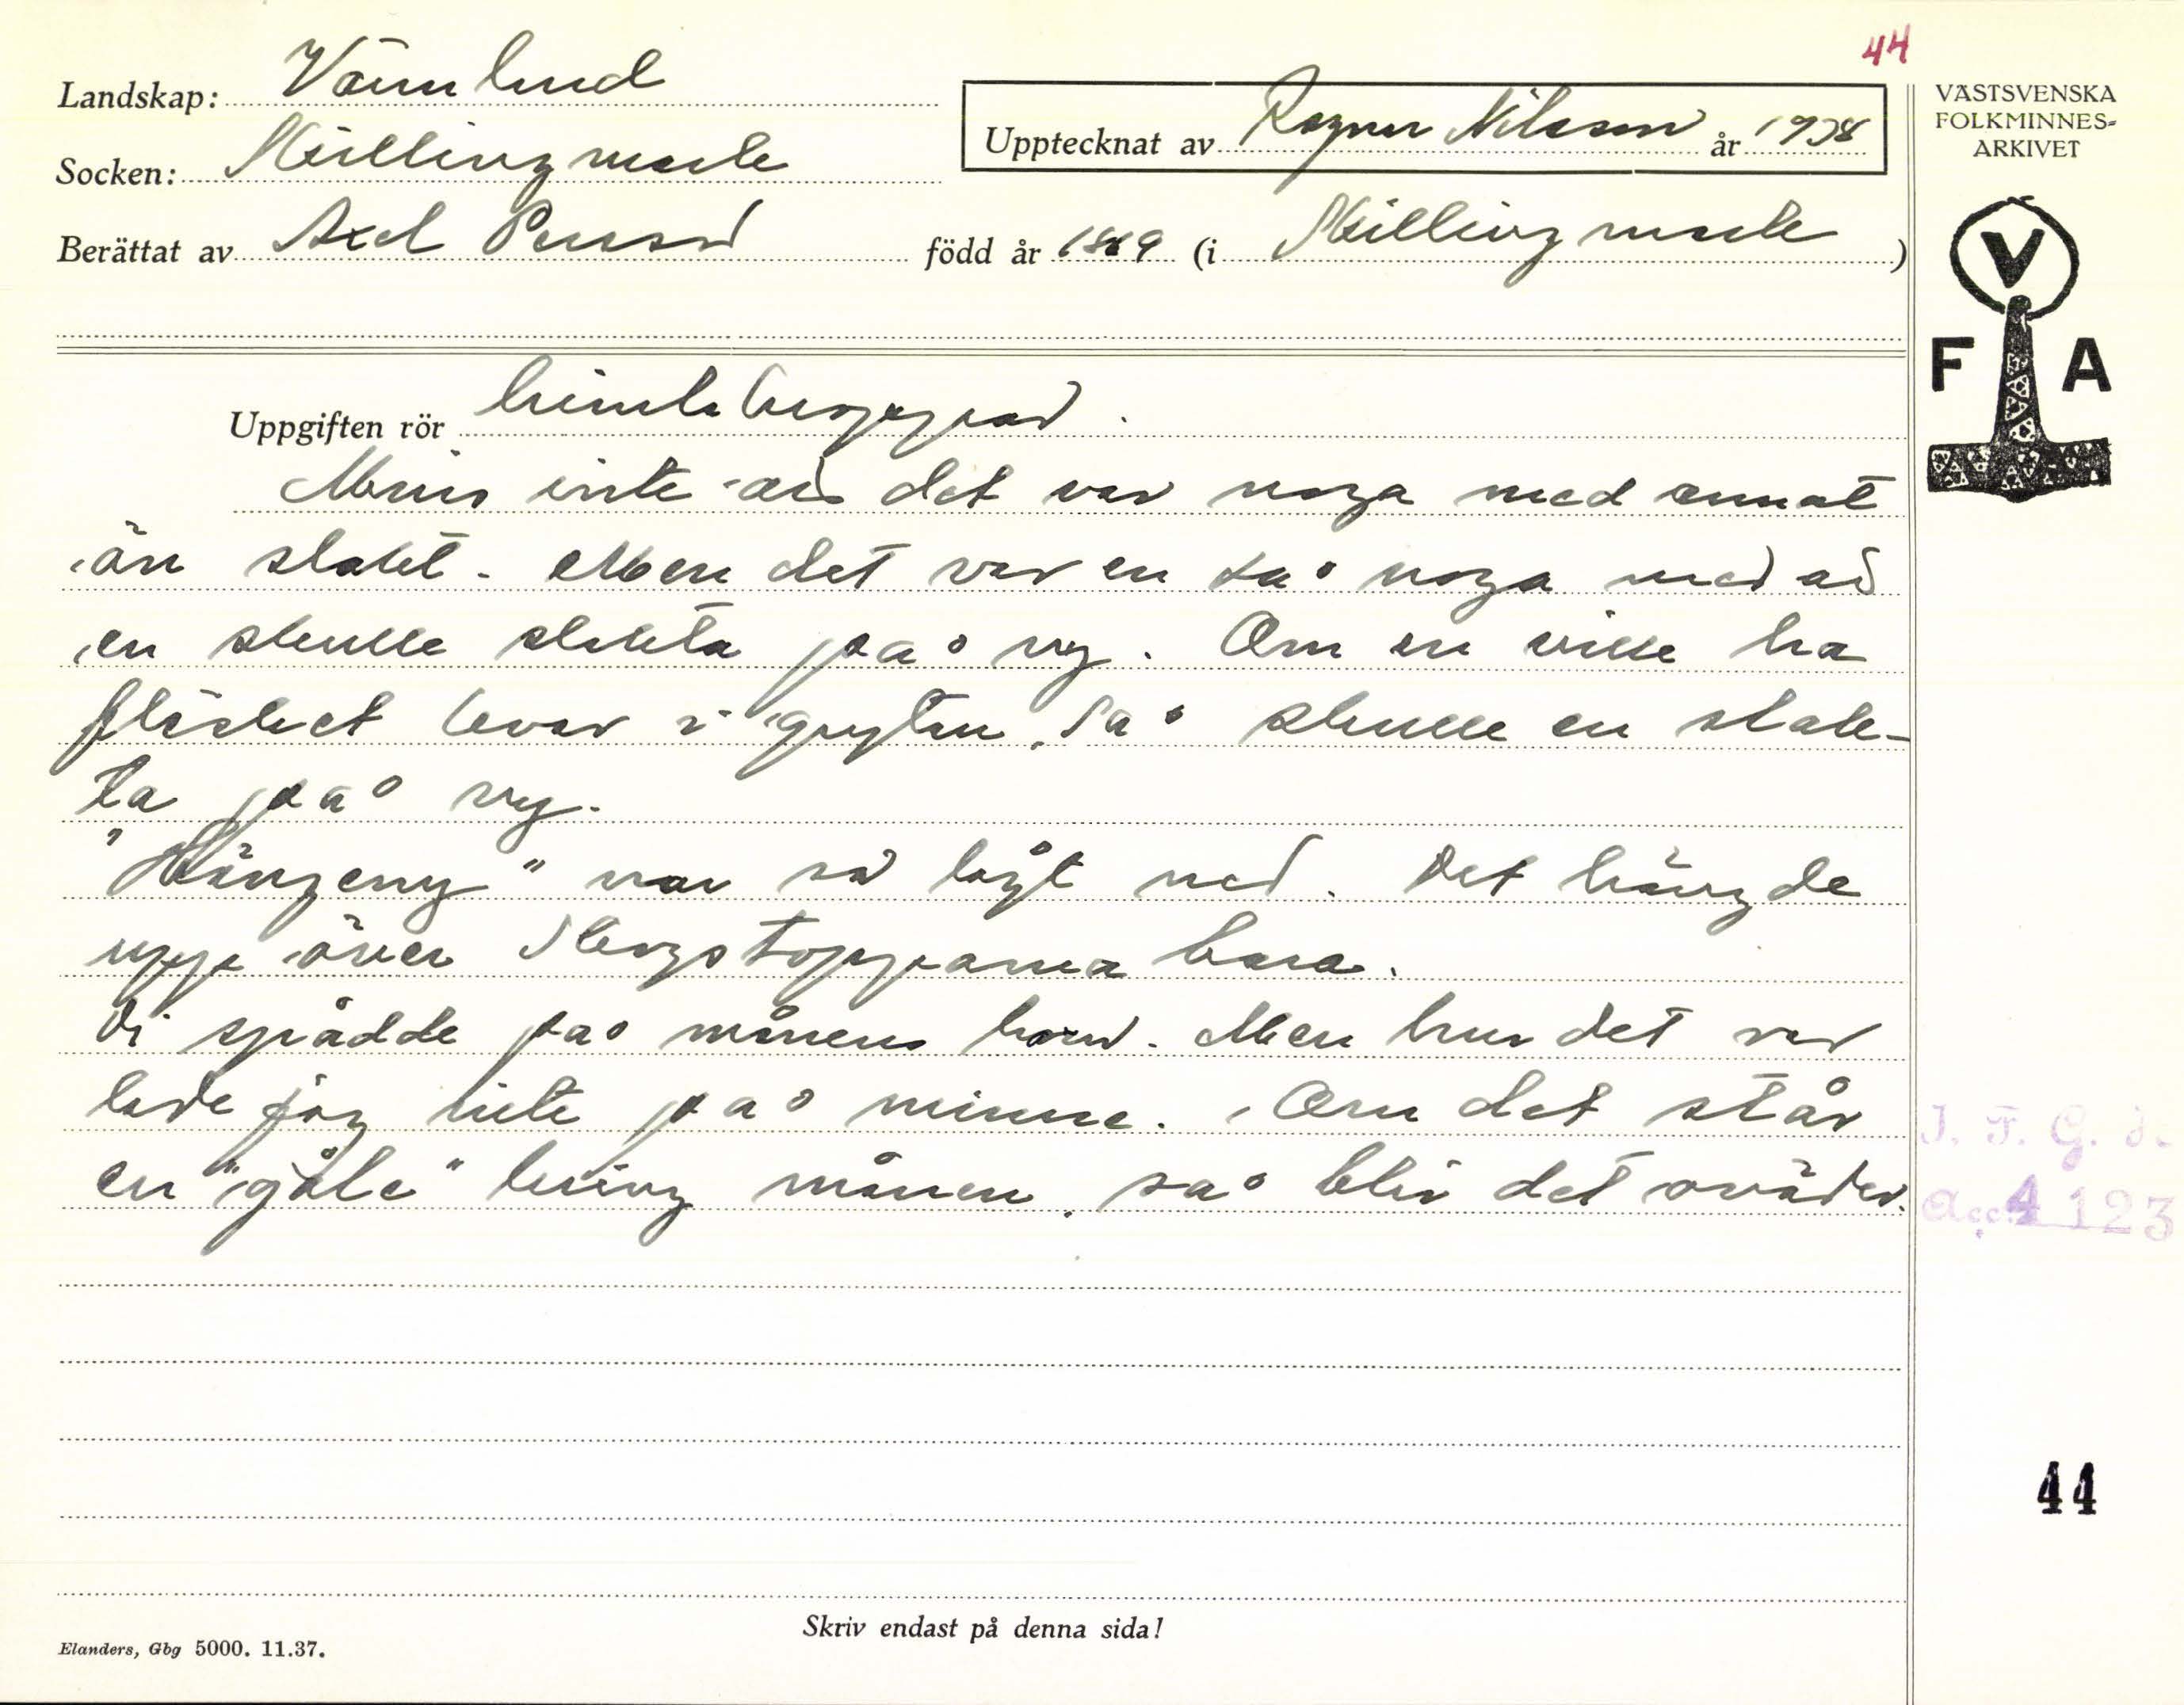 44
Landskap: Värmland
Upptecknat av Ragnar Nilsson år 1938
VÄSTSVENSKA
FOLKMINNES-
ARKIVET
Socken: Skillingmark
Berättat av Axel Persson född år 1869 (i Skillingmark)
V
F A
Uppgiften rör himlakroppar.
Minns inte att det var noga med annat
än slakt. Men det var en så noga med att
en skulle slakta på ny. Om en ville ha
fläsket kvar i grytan, så skulle en slak-
ta på ny.
"Hängeny" var så lågt ned. Det hängde
uppe över skogstopparna bara.
Di spådde på månens horn. Men hur det var
lade jag inte på minne. Om det står
en "gåle" kring månen, så blir det oväder.
I. F. G. s.
Acc. 4123
44
Skriv endast på denna sida!
Elanders, Gbg 5000. 11.37.